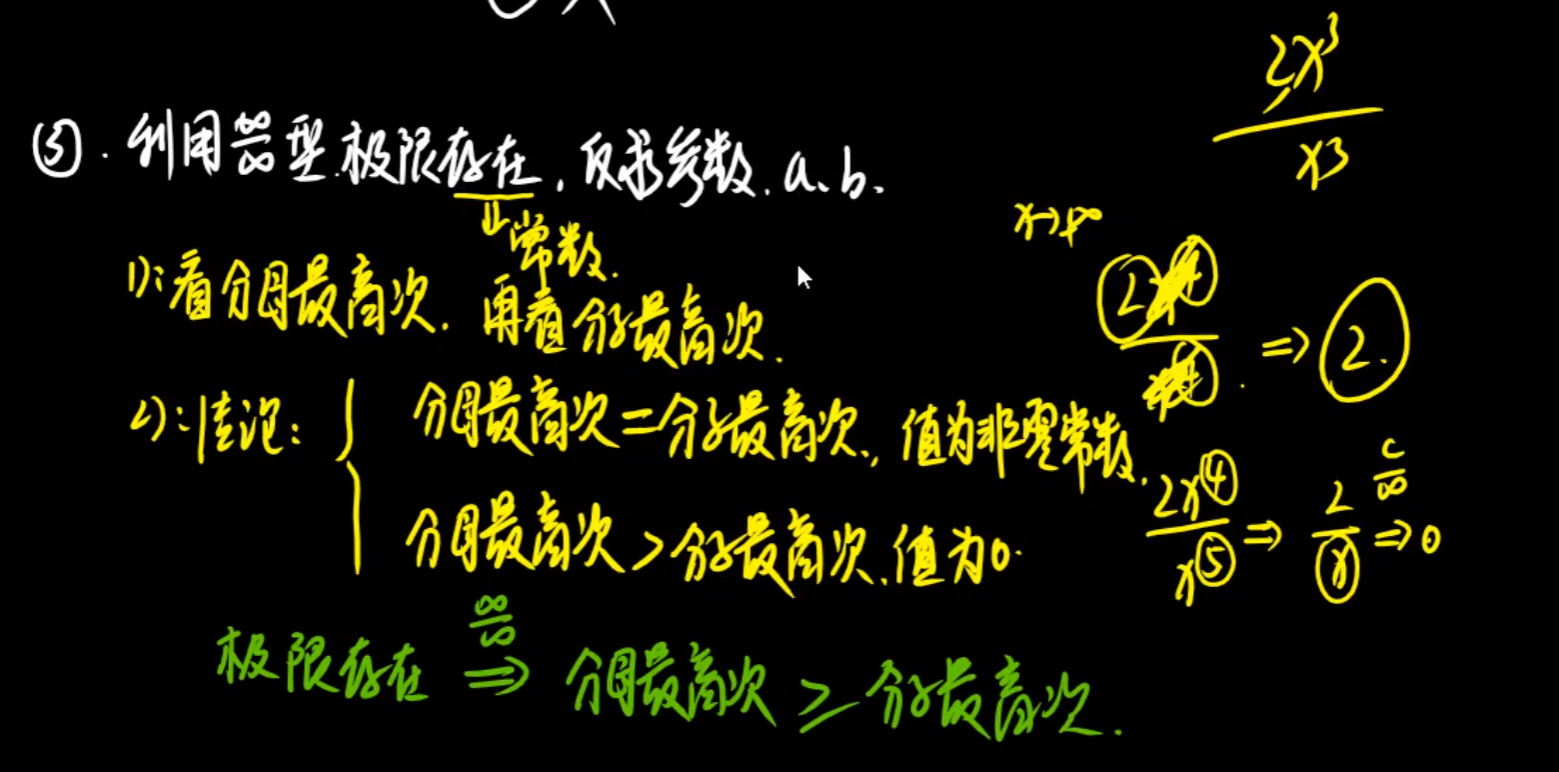 ⑤. 利用 ∞/∞ 型.极限存在, 反求参数. a、b、
⇓常数.
1):看分母最高次. 再看分子最高次.
2):结论: { 分母最高次=分子最高次., 值为非零常数.
分母最高次>分子最高次.值为0.
极限存在 ∞/∞ ⇒ 分母最高次 ≥ 分子最高次.
2x³/x³
x→∞
⇒ 2.
2x④/x⑤ ⇒ 2/x c/∞ ⇒ 0